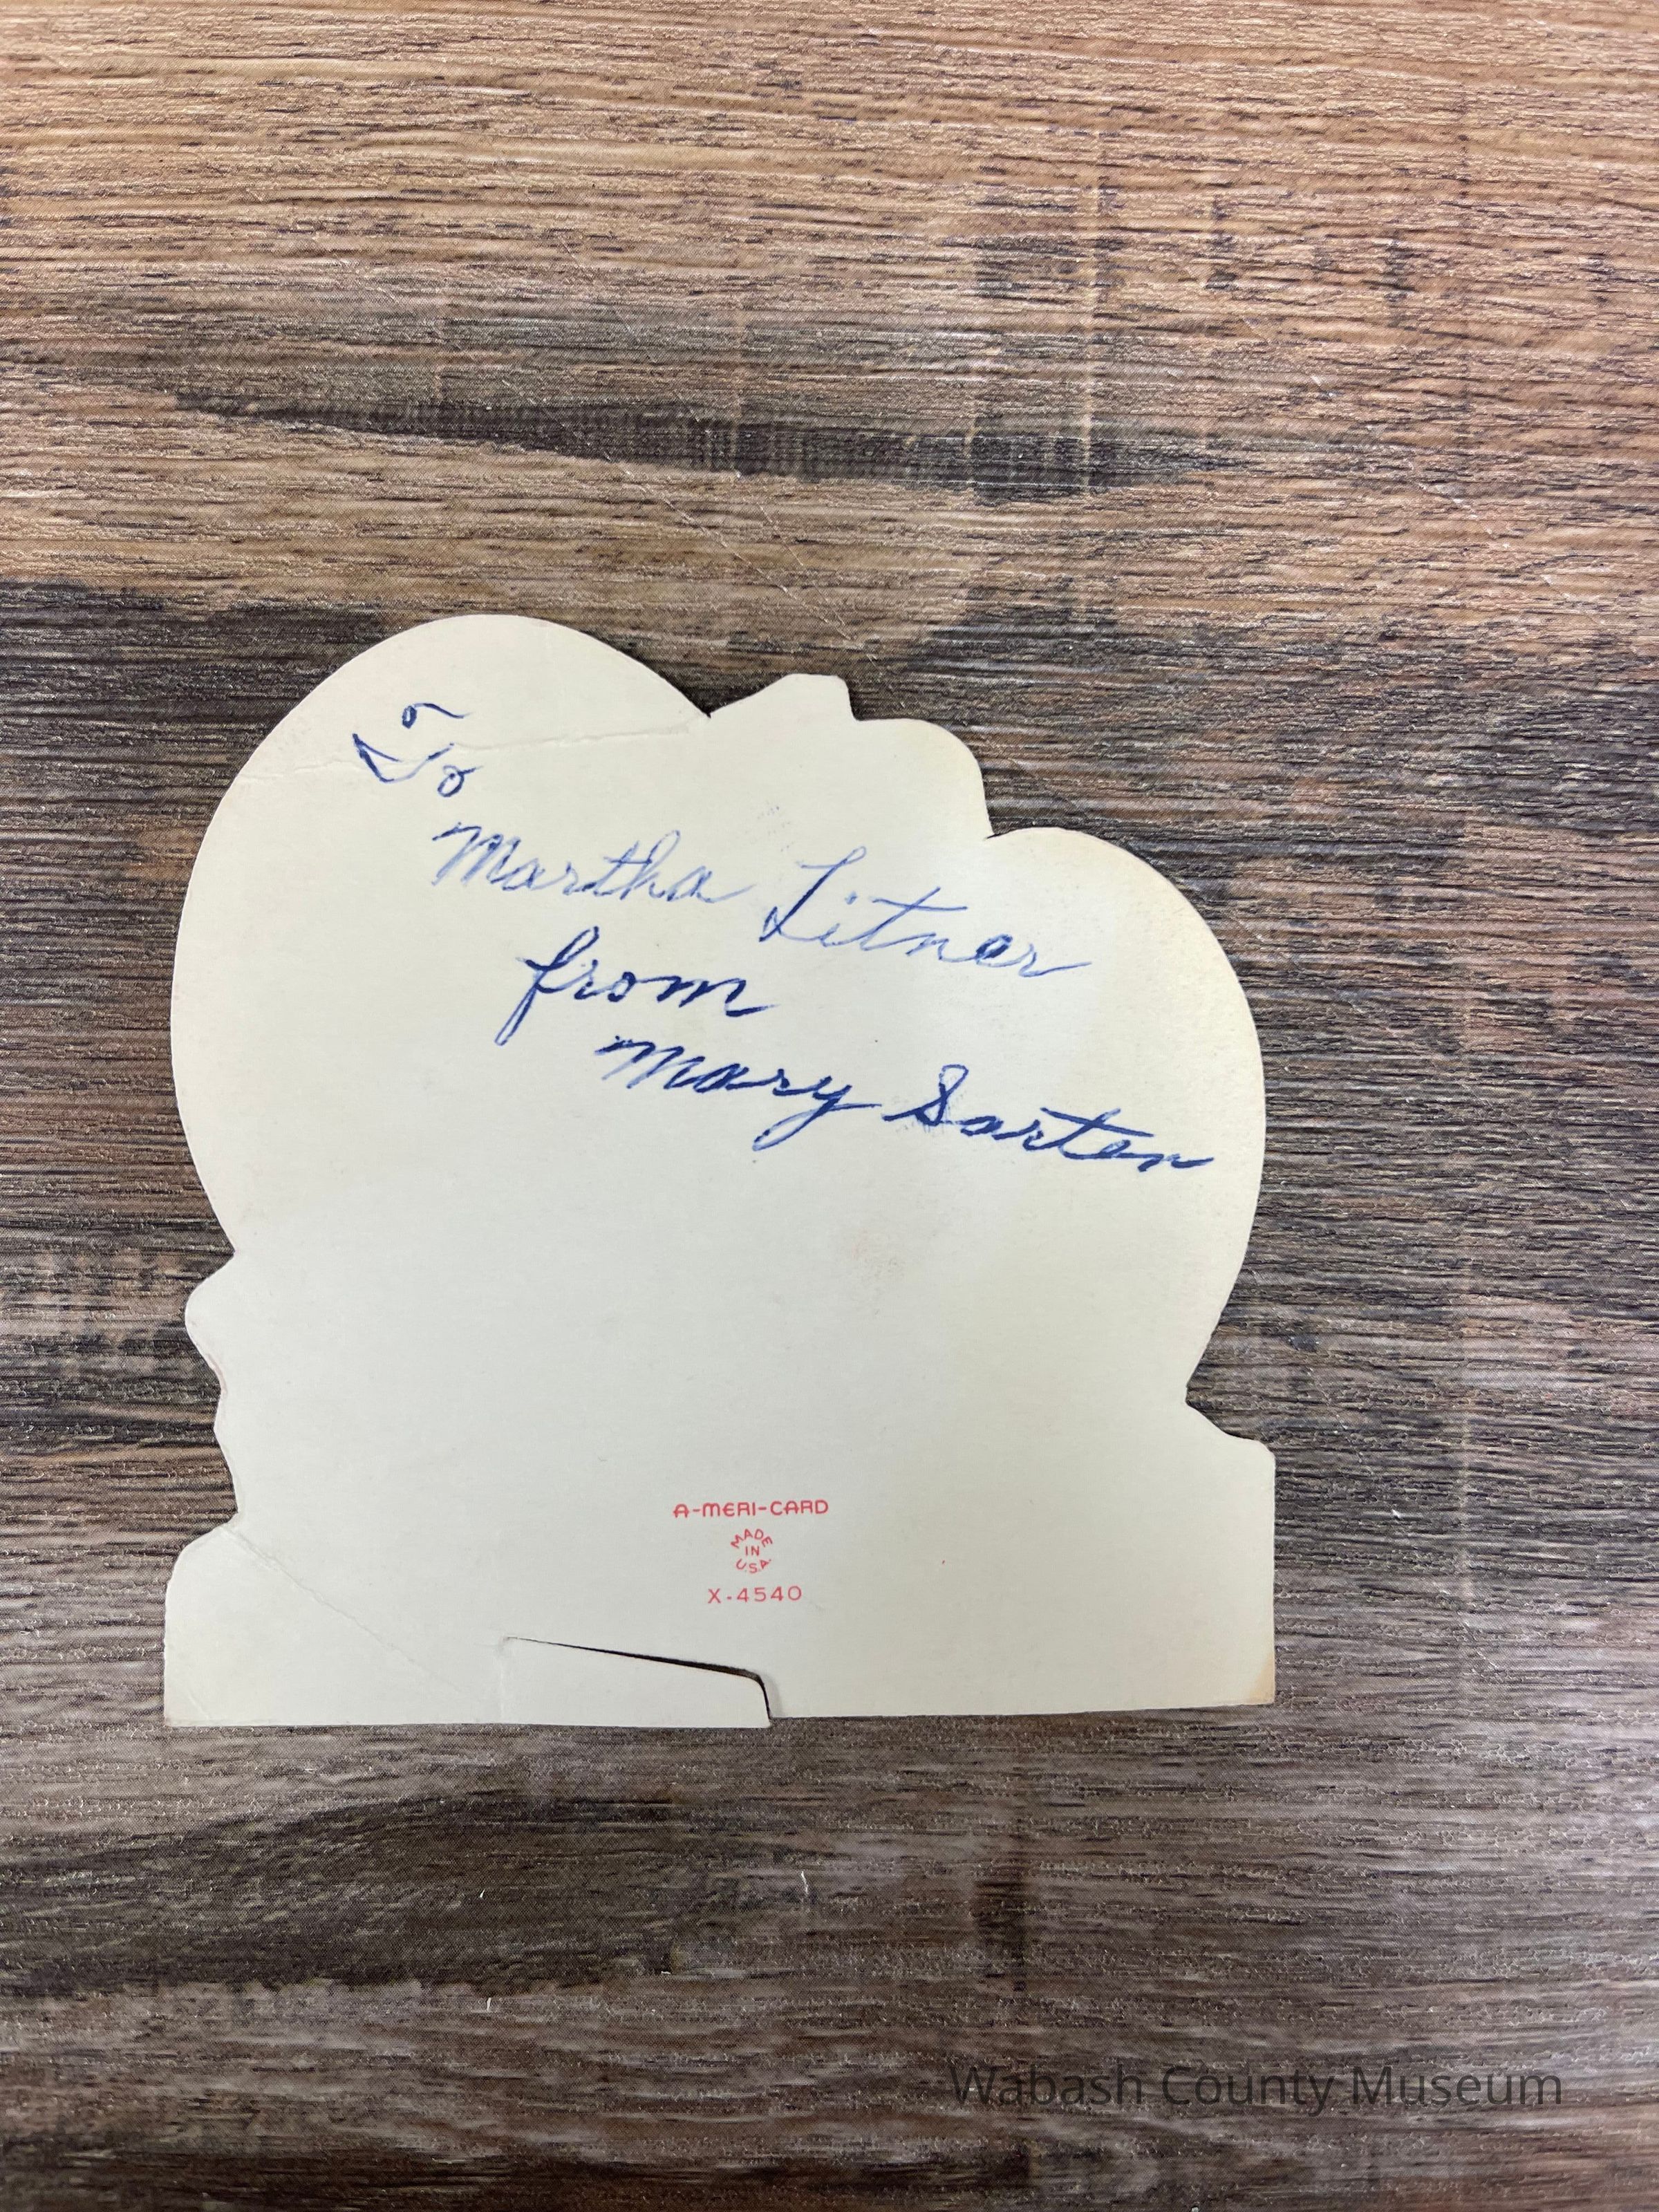 To
Martha Litner
from
Mary Sarten
A-MERI-CARD
MADE
IN
U.S.A.
X-4540
Wabash County Museum